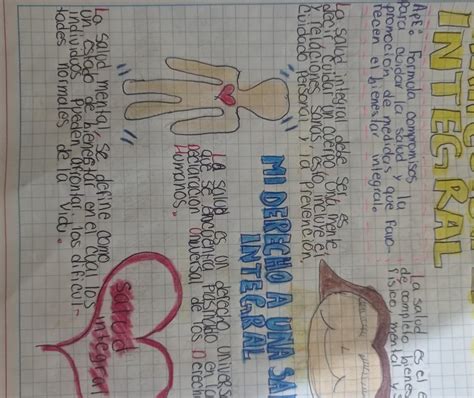 INTEGRAL
Ap: Formula compromisos
para cuidar la salud y la
promoción de medidas que favo-
recen el bienestar integral.
La salud es el e
de completo bienes
físico, mental y s
La salud integral debe ser, es
decir, cuidar un cuerpo, una mente
y relaciones sanas, esto incluye el
cuidado personal y la prevención.
MI DERECHO A UNA SA
INTEGRAL
La salud es un derecho univers
que se encuentra plasmado en la
Declaración Universal de los Derech
Humanos.
La salud mental, se define como
un estado de bienestar en el cual los
individuos pueden afrontar las dificul-
tades normales de la vida.
salud
integral